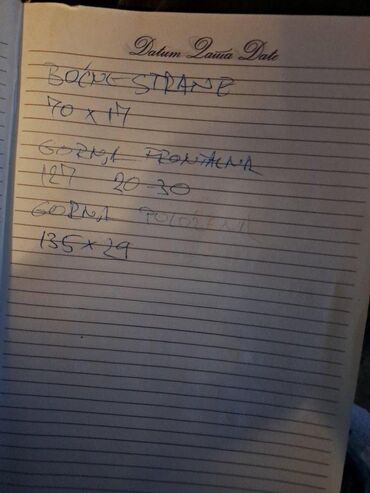 Datum Датум Date
BOČNE STRANE
70 x 17
GORNJA FRONTALNA
127 20-30
GORNJA
135 x 29